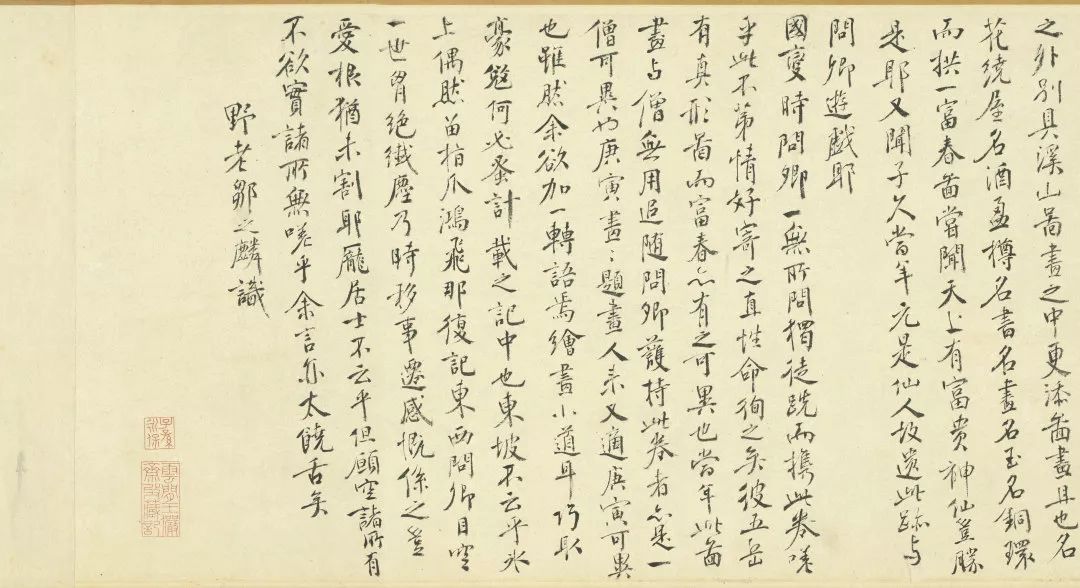 之外別具溪山啚畫之中更添啚畫且也名
花繞屋名酒盈樽名書名畫名玉名銅環
而拱一富春啚嘗聞天上有富貴神仙豈勝
是耶又聞子久當年元是仙人故遺此跡与
問卿遊戲耶
國變時問卿一無所問獨徒跣而攜此卷嗟
乎此不第情好寄之直性命徇之矣彼五岳
有真形啚而富春亦有之可異也當年此啚
畫与僧無用追随問卿護持此卷者亦是一
僧可異也庚寅畫〻題畫人来又適庚寅可異
也雖然余欲加一轉語焉繪畫小道耳巧取
豪奪何必蚤計載之記中也東坡不云乎氷
上偶然留指爪鴻飛那復記東西問卿目空
一世胷絕纖塵乃時移事遷感慨係之豈
愛根猶未割耶龐居士不云乎但願空諸所有
不欲實諸所無嗟乎余言亦太饒舌矣
野老鄒之麟識